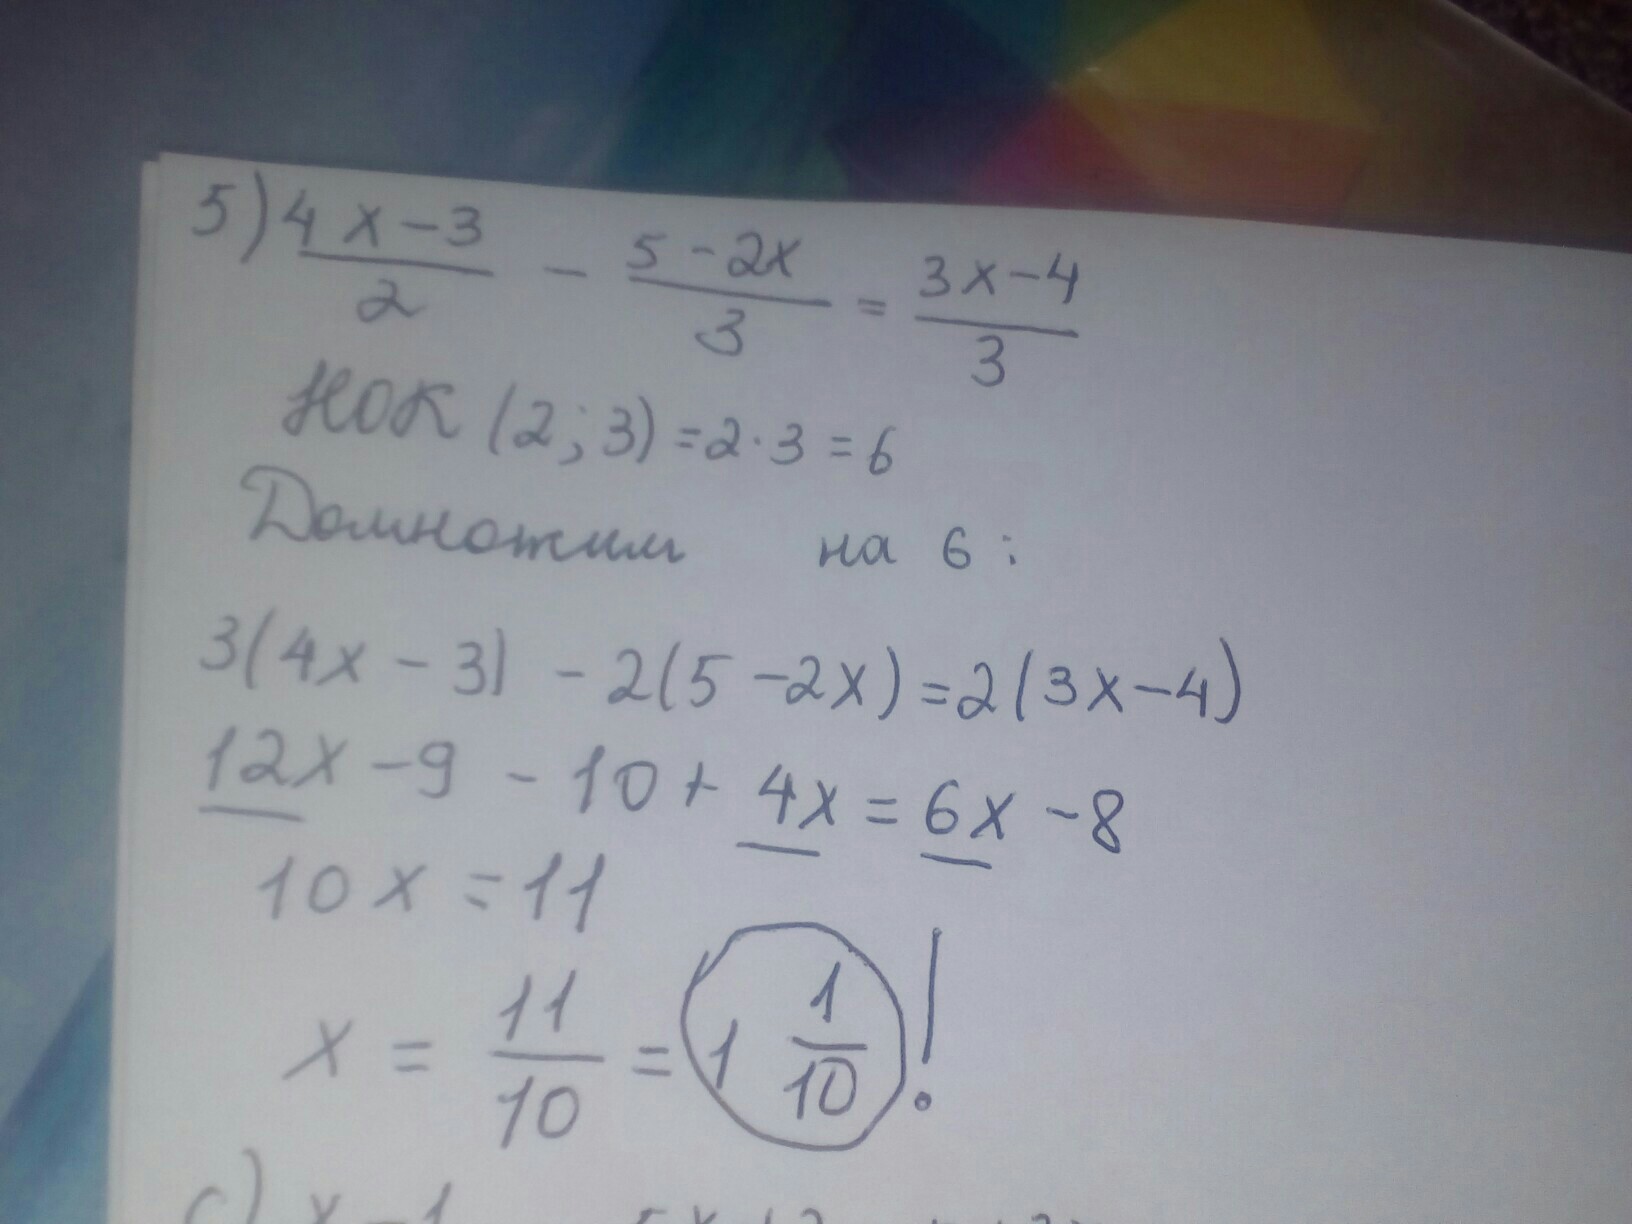 5) (4x-3)/2 - (5-2x)/3 = (3x-4)/3
НОК (2; 3) = 2·3 = 6
Домножим на 6:
3(4x-3) - 2(5-2x) = 2(3x-4)
12x-9 - 10+ 4x = 6x -8
10x = 11
x = 11/10 = 1 1/10 !